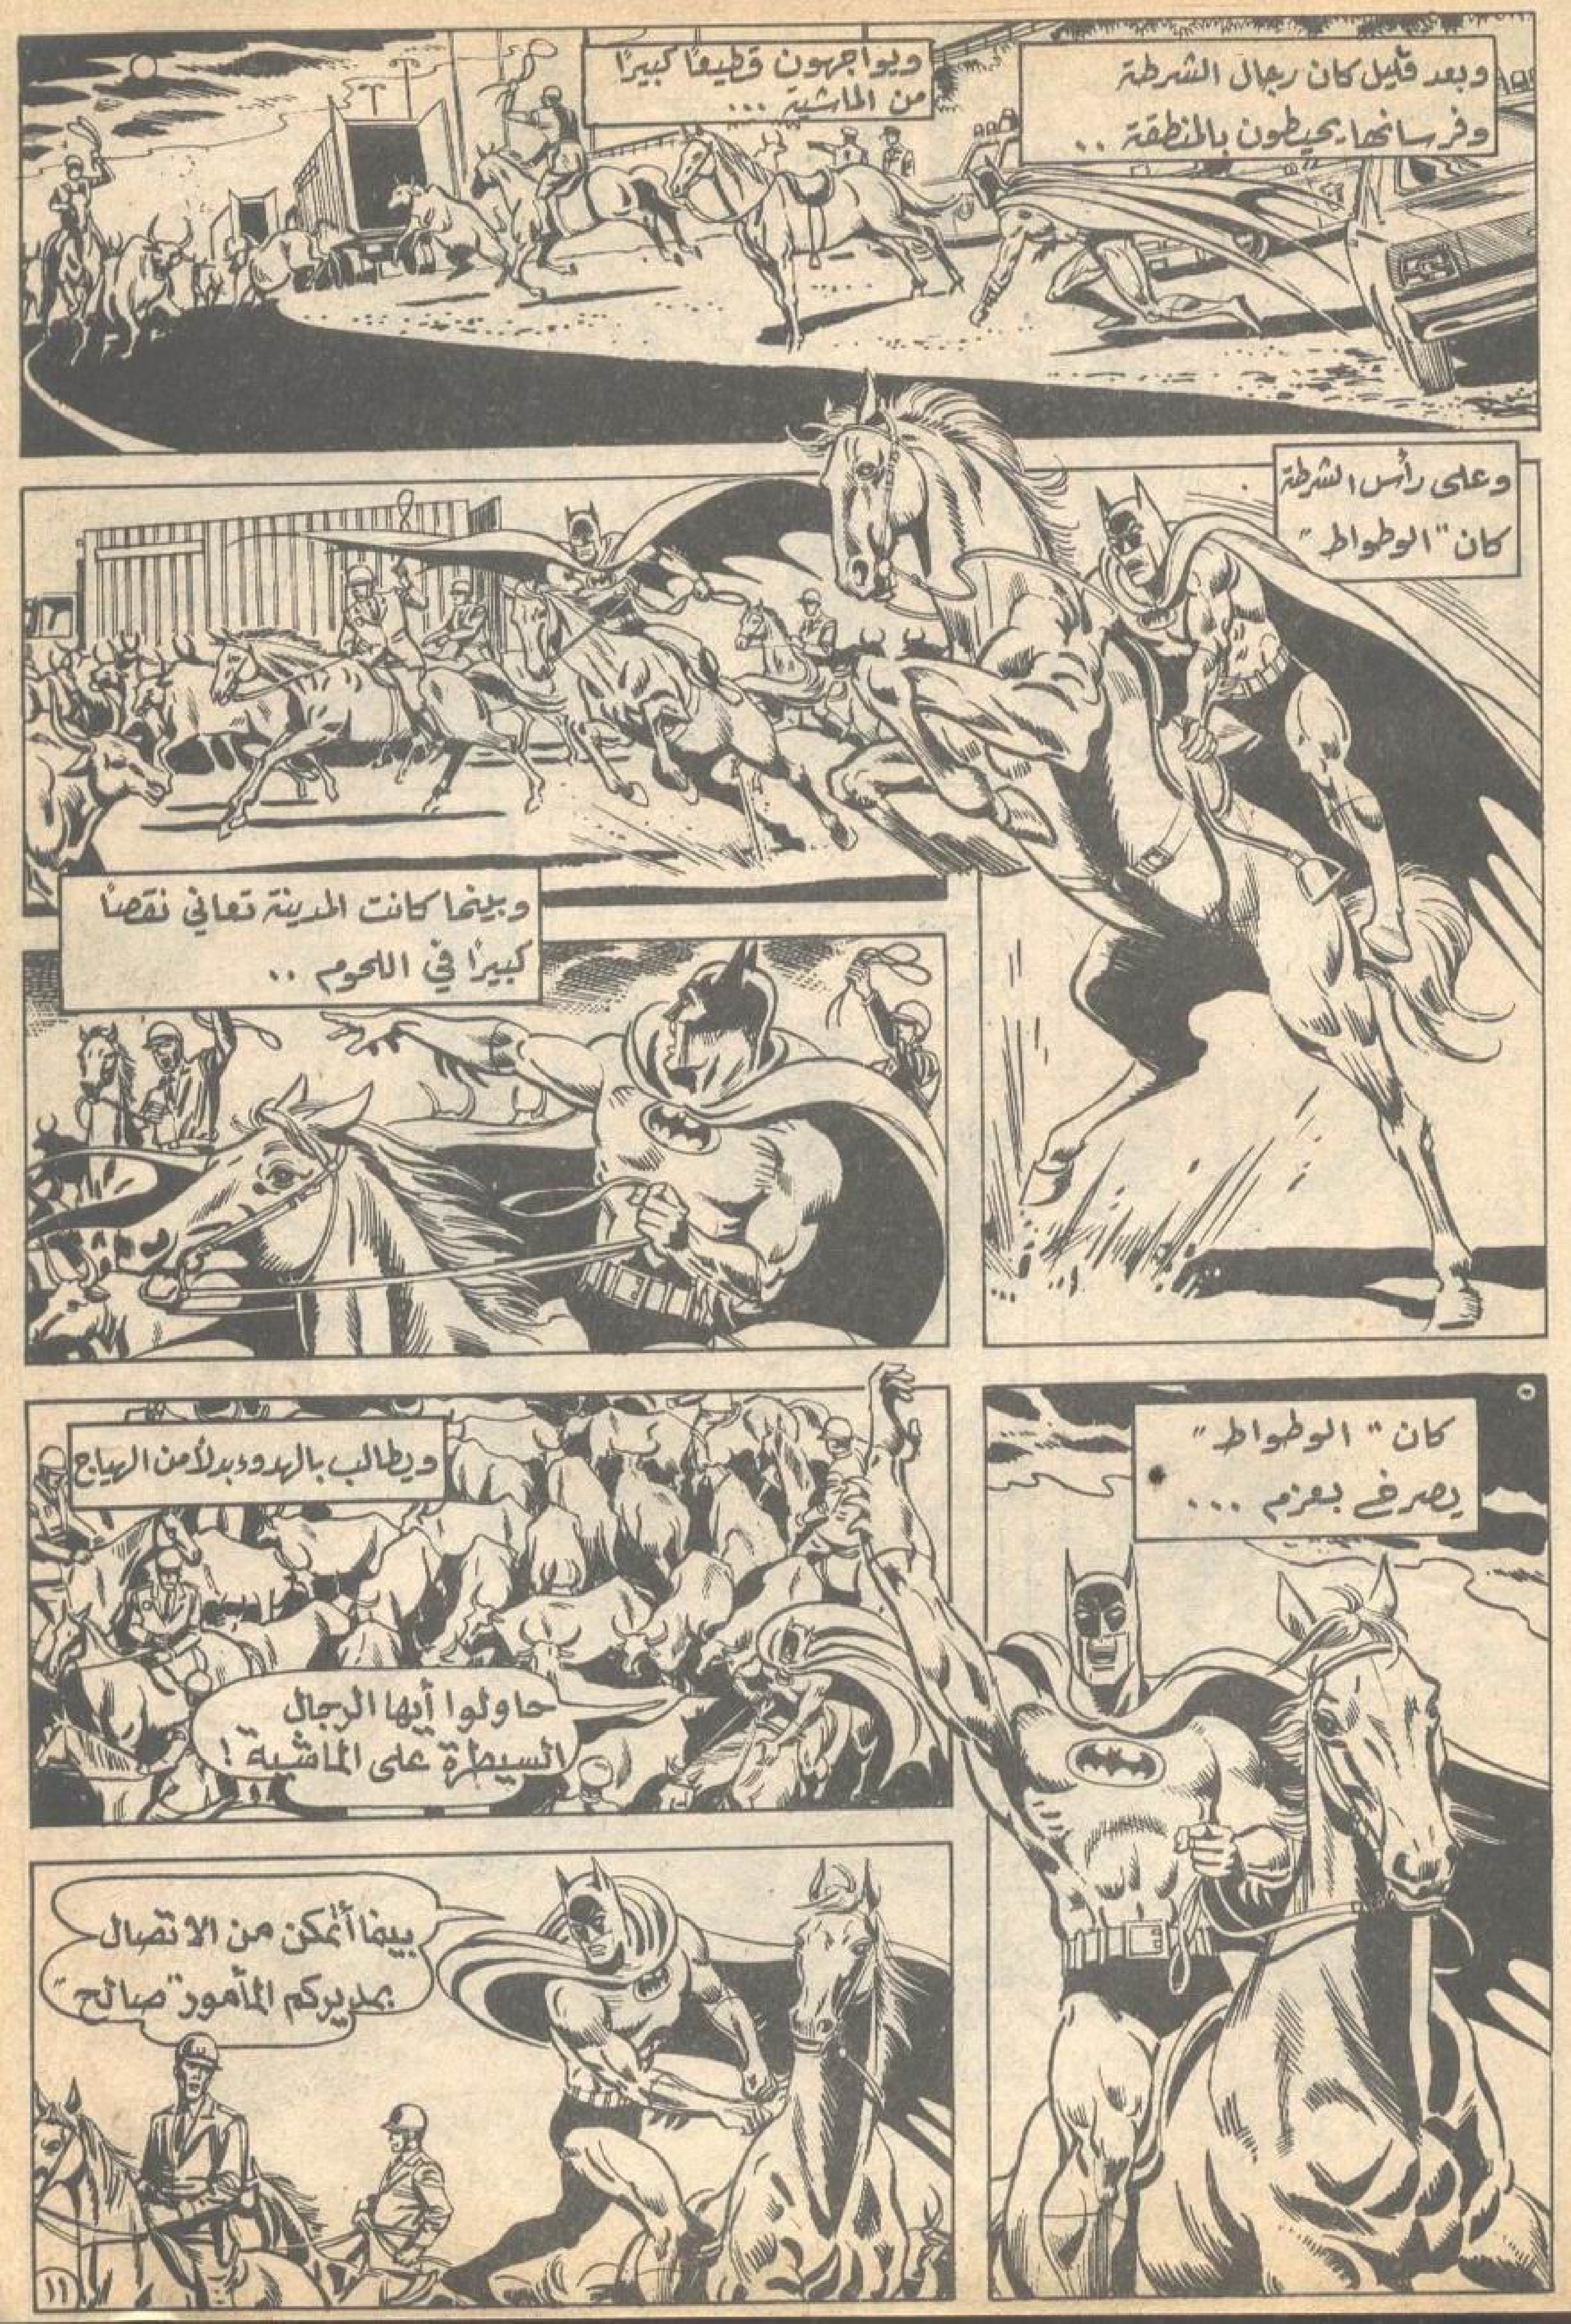 وبعد قليل كان رجال الشرطة
وفرسانها يحيطون بالمنطقة ..
ويواجهون قطيعًا كبيرًا
من الماشية ...
وعلى رأس الشرطة
كان "الوطواط"
وبينما كانت المدينة تعاني نقصًا
كبيرًا في اللحوم ..
كان "الوطواط"
يصرخ بعزم ...
ويطالب بالهدوء بدلاً من الهياج
حاولوا أيها الرجال
السيطرة على الماشية !
بينما أتمكن من الاتصال
بمديركم المأمور "صالح"
١١